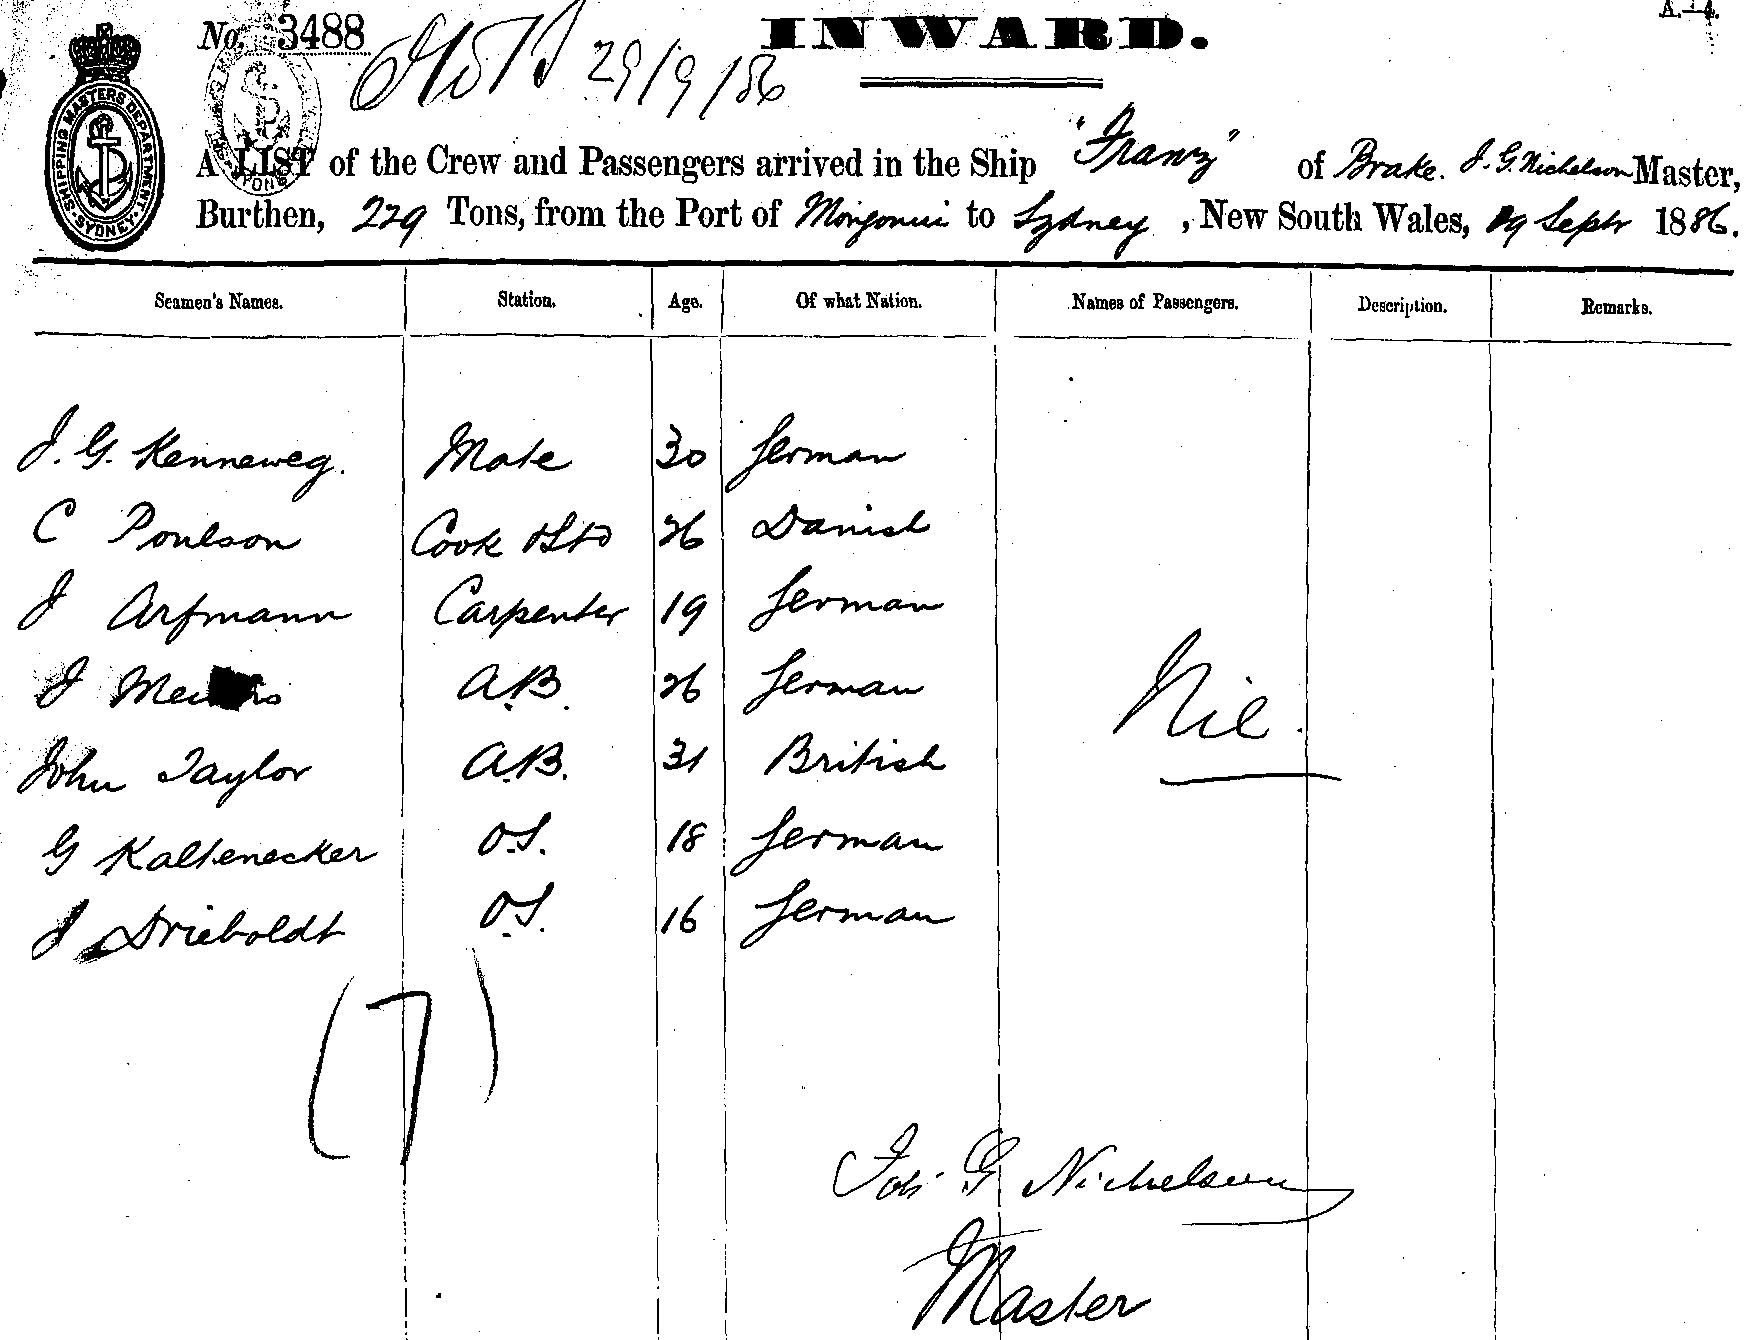 No. 3488 29/9/86 INWARD. A.—4.
SHIPPING MASTERS DEPARTMENT SYDNEY
A LIST of the Crew and Passengers arrived in the Ship "Franz" of Brake. J. G. Nichelson Master,
Burthen, 229 Tons, from the Port of Mongonui to Sydney, New South Wales, 29 Septr 1886.
Seamen's Names. Station. Age. Of what Nation. Names of Passengers. Description. Remarks.
J. G. Kenneweg. Mate 30 German
C Poulson Cook & Std 26 Danish
J Arfmann Carpenter 19 German
J A.B. 26 German
Nil.
John Taylor A.B. 31 British
G Kaltenecker O.S. 18 German
J Drieboldt O.S. 16 German
(7)
Joh G Nichelson
Master